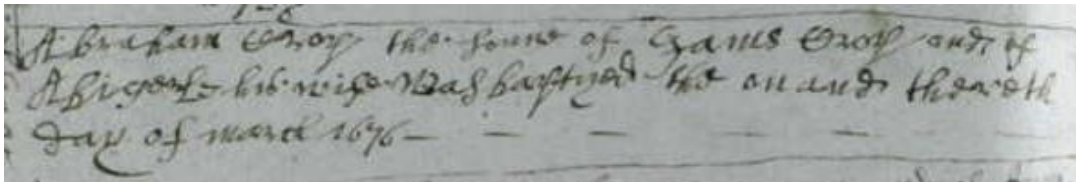 Abraham Groy the sonne of Jams Groy and of
Abigeele his wife Was baptyed the on and therteth
day of march 1676